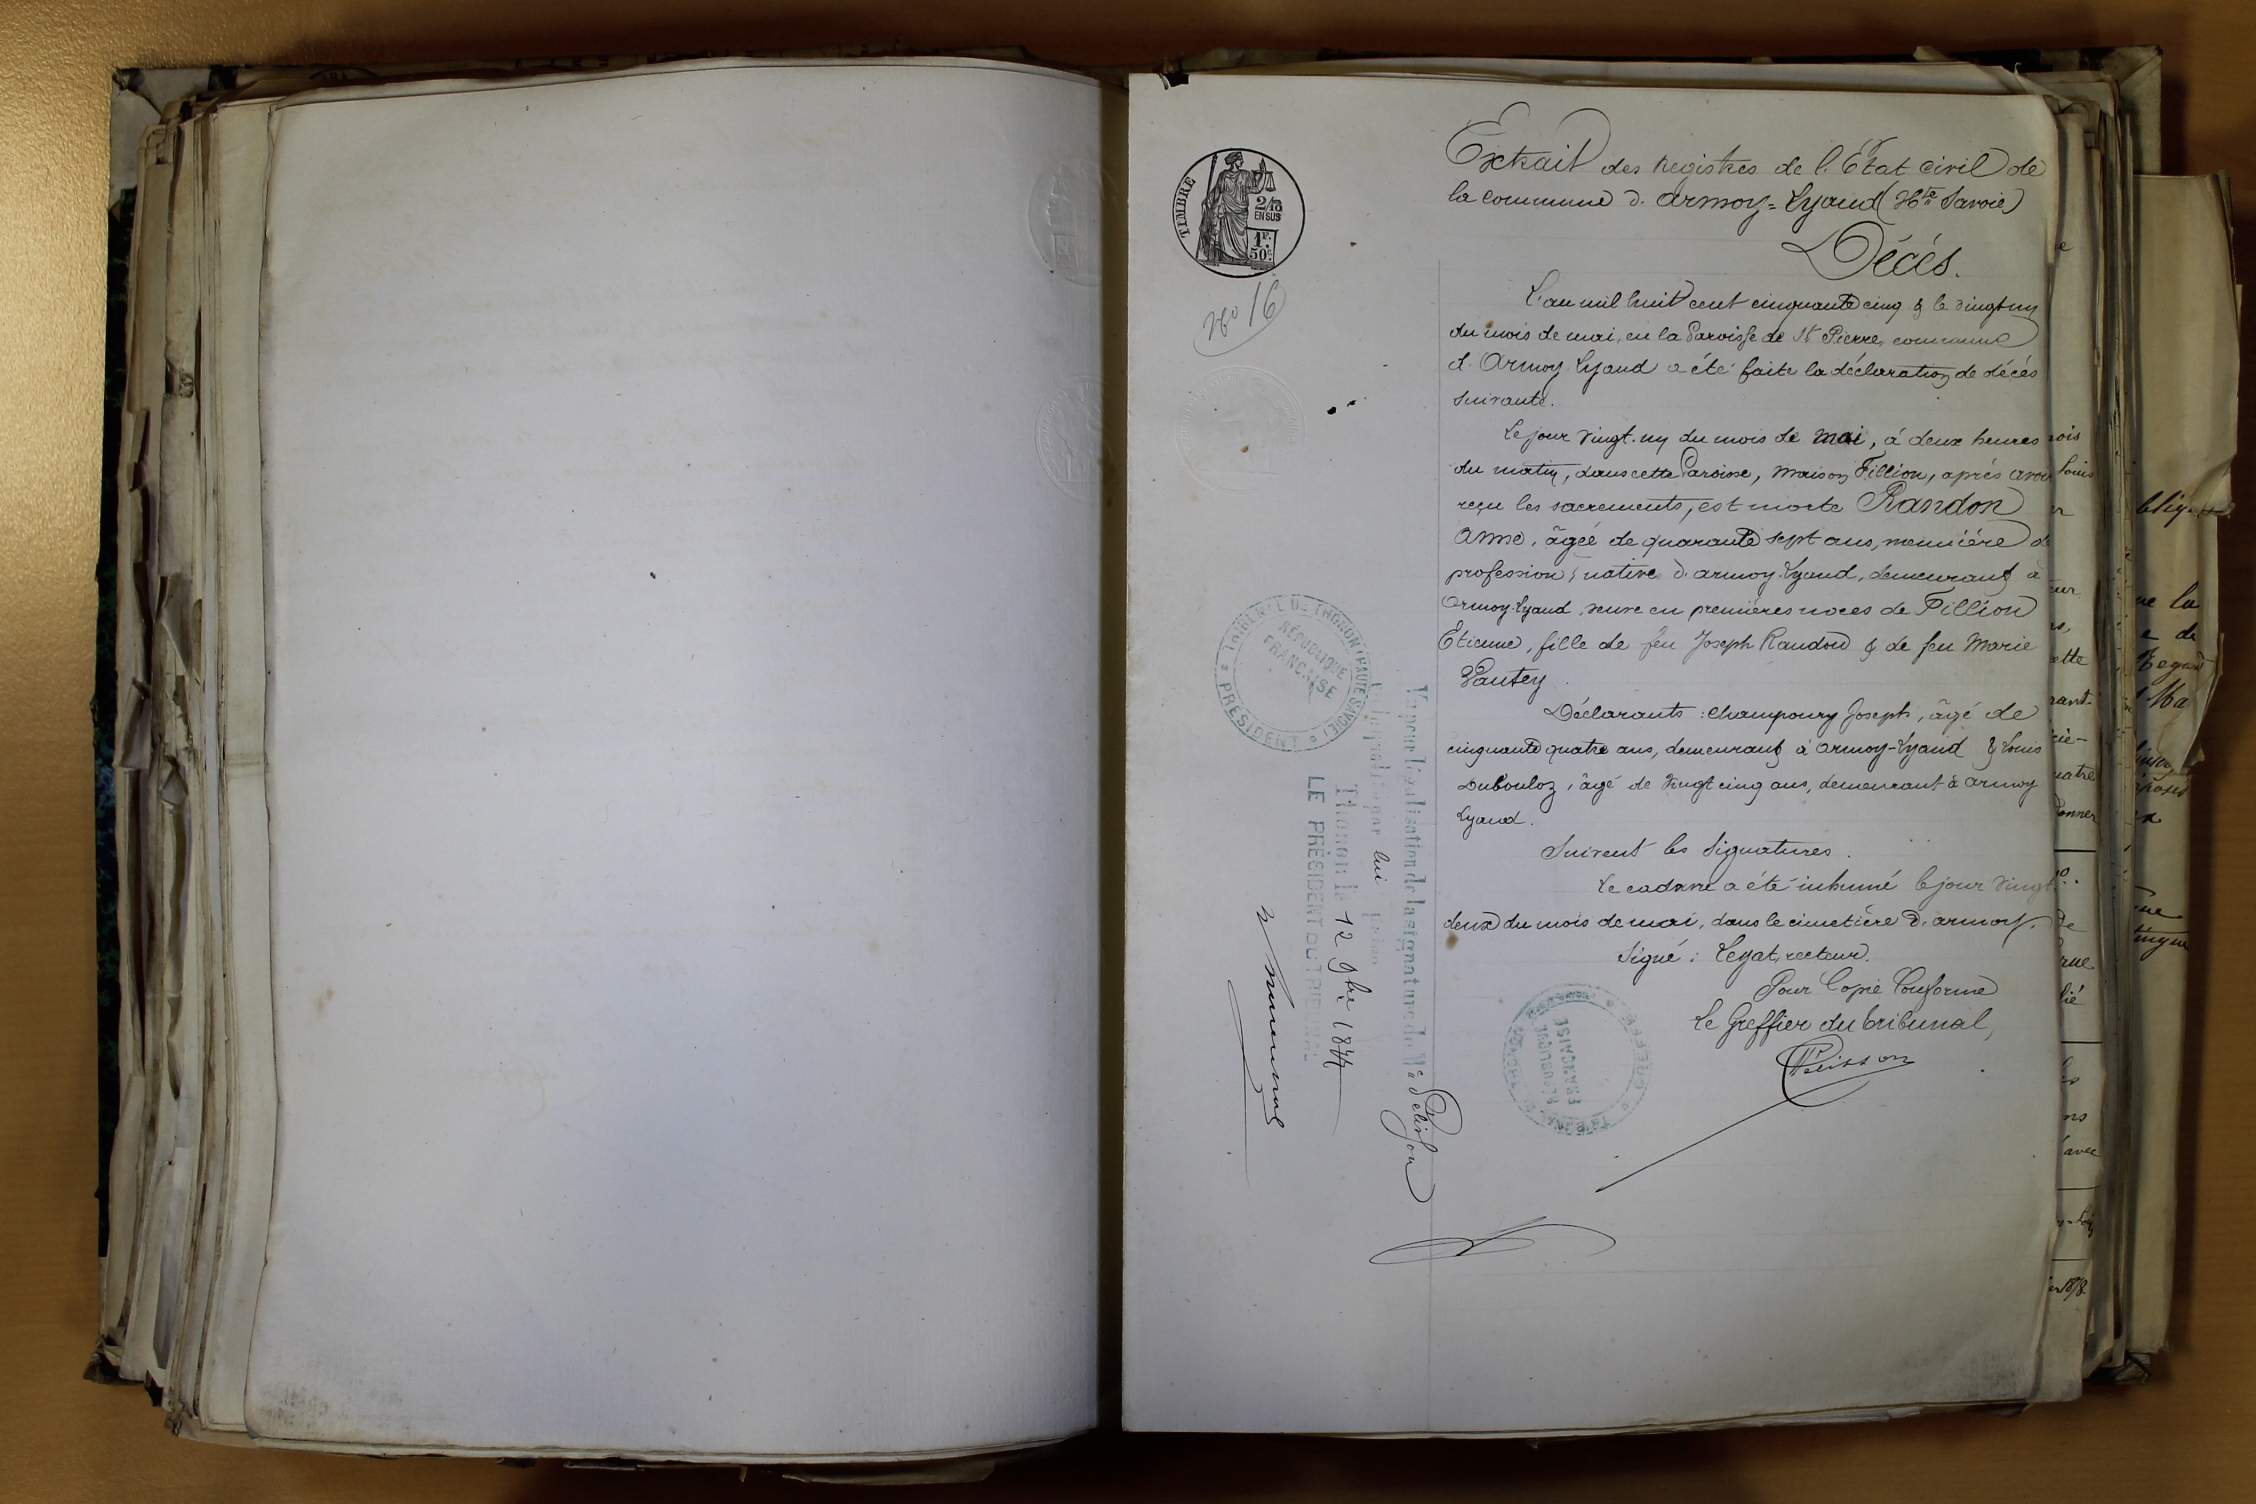 TIMBRE
2/10
EN SUS
1F.
50c
No 16
Extrait des Registres de l'État civil de
la commune d'armoy=Lyaud (Hte Savoie)
Décés.
L'an mil huit cent cinquante cinq & le vingt un
du mois de mai, en la Paroisse de St Pierre, commune
d'Armoy Lyaud a été faite la déclaration de décés
suivante.
Le jour vingt-un du mois de mai, à deux heures
du matin, dans cette Paroisse, maison Fillion, aprés avoir
reçu les sacrements, est morte Randon
Anne, âgée de quarante sept ans, menuiére de
profession, native d'armoy-Lyaud, demeurant à
Armoy-Lyaud, veuve en premiéres noces de Fillion
Étienne, fille de feu Joseph Randon & de feu Marie
Vautey.
Déclarants : Champoury Joseph, âgé de
cinquante quatre ans, demeurant à Armoy-Lyaud & Louis
Dubouloz, âgé de vingt cinq ans, demeurant à armoy
Lyaud.
Suivent les signatures.
Le cadavre a été inhumé le jour vingt
deux du mois de mai, dans le cimetière d'armoy.
Signé : Leyat, recteur.
Pour Copie Conforme
Le Greffier du tribunal,
Pélisson
TRIBUNAL DE THONON (HAUTE SAVOIE)
PRÉSIDENT
RÉPUBLIQUE
FRANÇAISE
Vu pour légalisation de la signature de Me Pélisson
lui
Thonon le 12 9bre 1877
LE PRÉSIDENT DU TRIBUNAL
GREFFE
RÉPUBLIQUE
FRANÇAISE